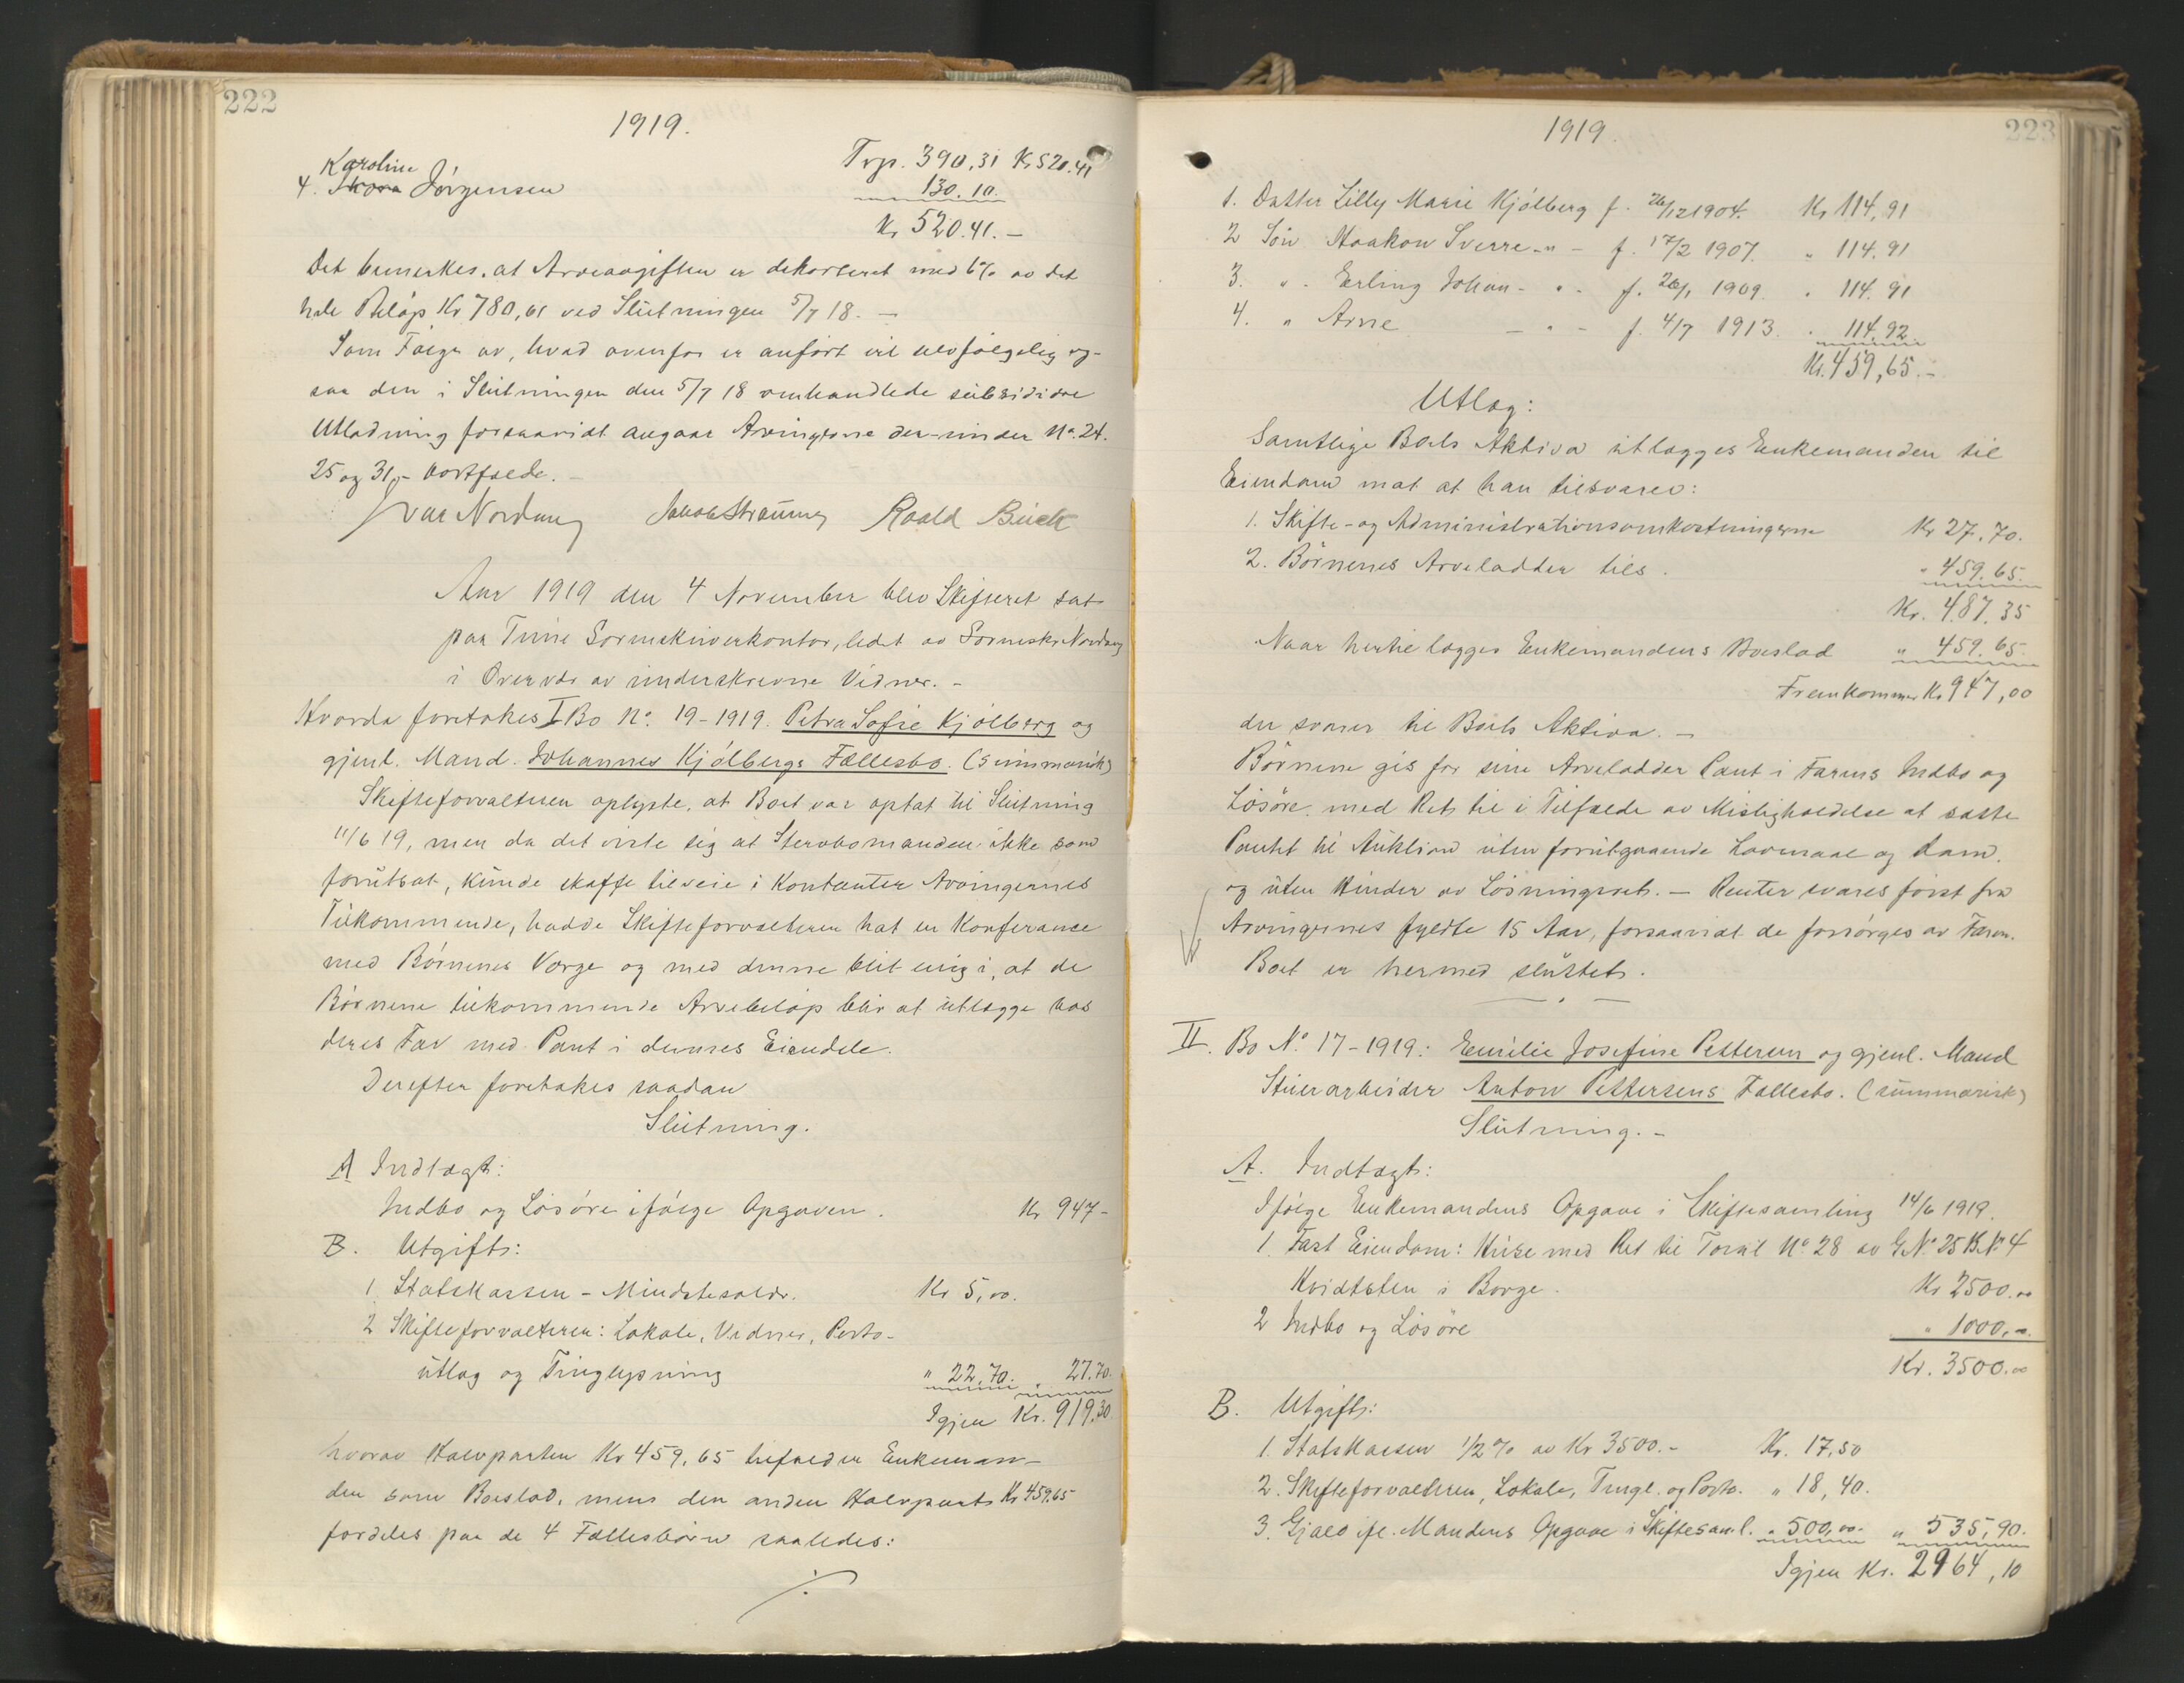 222
1919.
Karoline
4. Thora Jörgensen
Trp. 390,31 Kr 520.41
130.10.
Kr 520.41.-
Det bemerkes, at Arveavgiften er dekorteret med 6% av det
hele Belöp Kr 780,61 ved Slutningen 5/7 18. -
Som Fölge av, hvad ovenfor er anfört vil selvfölgelig og-
saa den i Slutningen den 5/7 18 omhandlede subsidiære
Utlodning forsaavidt angaar Arvingerne der-under No. 24.
25 og 31,- bortfalde. -
Ivar Nordang Roald Buck
Aar 1919 den 4 November blev Skifteret sat
paa Tune Sorenskriverkontor, ledet av Sorenskr. Nordang
i Overvær av underskrevne Vidner. -
Hvorda foretokes I Bo No. 19-1919. Petra Sofie Kjölberg og
gjenl. Mand. Johannes Kjölbergs Fællesbo. (summarisk)
Skifteforvalteren oplyste, at Boet var optat til Slutning
11/6 19, men da det viste sig at Stervbomanden ikke som
forutsat, kunde skaffe tilveie i Kontanter Arvingernes
Tilkommende, hadde Skifteforvalteren hat en Konferance
med Börnenes Verge og med denne blit enig i, at de
Börnene tilkommende Arvebelöp blir at utlægge hos
deres Far med Pant i dennes Eiendele.
Derefter foretokes saadan
Slutning.
A Indtægt:
Indbo og Lösöre ifölge Opgaven. Kr 947-
B. Utgift:
1. Statskassen - Mindstesaldr. Kr 5,00.
2 Skifteforvalteren: Lokale, Vidner, Porto-
utlæg og Tinglysning " 22,70. " 27.70.
Igjen Kr. 919,30.
hvorav Halvparten Kr 459,65 tilfalder Enkeman-
den som Boeslod, mens den anden Halvpart Kr 459.65
fordeles paa de 4 Fællesbörn saaledes:
./.
223
1919.
1. Datter Lilly Marie Kjölberg f. 26/12 1904. Kr 114,91
2 Sön Haakon Sverre - " - f. 17/2 1907. " 114.91
3. " - Erling Johan - " - f. 26/1 1909. " 114.91
4. " Arne - " - f. 4/7 1913. " 114.92
Kr. 459,65.-
Utlæg:
Samtlige Boets Aktiva utlægges Enkemanden til
Eiendom mot at han tilsvarer:
1. Skifte- og Administrationsomkostningerne Kr 27,70.
2. Börnenes Arvelodder tils. " 459.65.
Kr. 487.35
Naar hertil lægges Enkemandens Boeslod " 459.65.
Fremkommer Kr 947,00
der svarer til Boets Aktiva. -
Börnene gis for sine Arvelodder Pant i Farens Indbo og
Lösöre, med Ret til i Tilfælde av Misligholdelse at sætte
Pantet til Auktion uten forutgaaende Lovmaal og Dom,
og uten Hinder av Lösningsret. - Renter svares först fra
Arvingernes fyldte 15 Aar, forsaavidt de forsörges av Faren.
Boet er hermed sluttet.
II. Bo No. 17-1919: Emilie Josefine Pettersen og gjenl. Mand
Stuerarbeider Anton Pettersens Fællesbo. (summarisk)
Slutning. -
A. Indtægt:
Ifölge Enkemandens Opgave i Skiftesamling 14/6 1919.
1. Fast Eiendom: Huse med Ret til Torvil No. 28 av G.No. 25 B.No. 4
Hvidtsten i Borge. Kr 2500.00
2 Indbo og Lösöre " 1000,-.
Kr. 3500.00
B. Utgift:
1. Statskassen 1/2 % av Kr 3500.- Kr. 17,50
2. Skifteforvalteren, Lokale, Tingl. og Porto. " 18,40.
3. Gjæld ifl. Mandens Opgave i Skiftesaml. " 500,00. " 535,90.
Igjen Kr. 2964,10